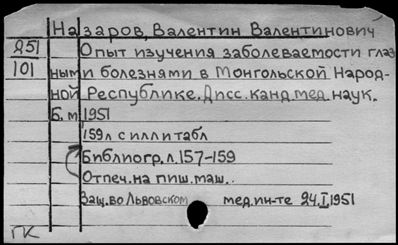 Назаров, Валентин Валентинович
251
101
Опыт изучения заболеваемости глаз-
ными болезнями в Монгольской Народ-
ной Республике. Дисс. канд. мед. наук.
Б.м 1951
159л с илл и табл
Библиогр. л. 157-159
Отпеч. на пиш. маш..
Защ. во Львовском мед. ин-те 24.I.1951
ГК